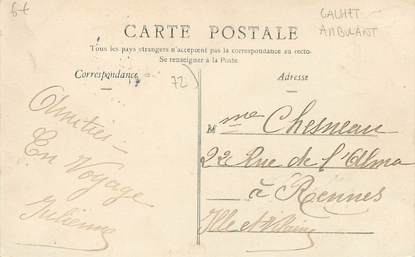 6€
GACHET
AMBULANT
CARTE POSTALE
Tous les pays étrangers n'acceptent pas la correspondance au recto.
Se renseigner à la Poste.
Correspondance
72)
Adresse
Amitiés
En Voyage
Julienne
Mme Chesneau
22 Rue de l'Alma
à Rennes
Ille et Vilaine